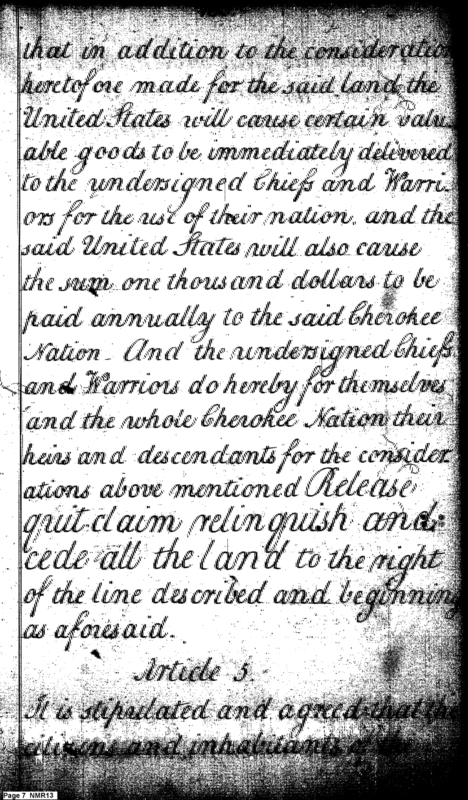 that in addition to the consideration
heretofore made for the said land the
United States will cause certain valu-
able goods to be immediately delivered
to the undersigned Chiefs and Warri-
ors for the use of their nation, and the
said United States will also cause
the sum one thousand dollars to be
paid annually to the said Cherokee
Nation. And the undersigned Chiefs
and Warriors do hereby for themselves
and the whole Cherokee Nation their
heirs and descendants for the consider
ations above mentioned Release
quit-claim relinquish and
cede all the land to the right
of the line described and beginning
as aforesaid.
Article 5.
It is stipulated and agreed that the
citizens and inhabitants of the
Page 7 NMR13